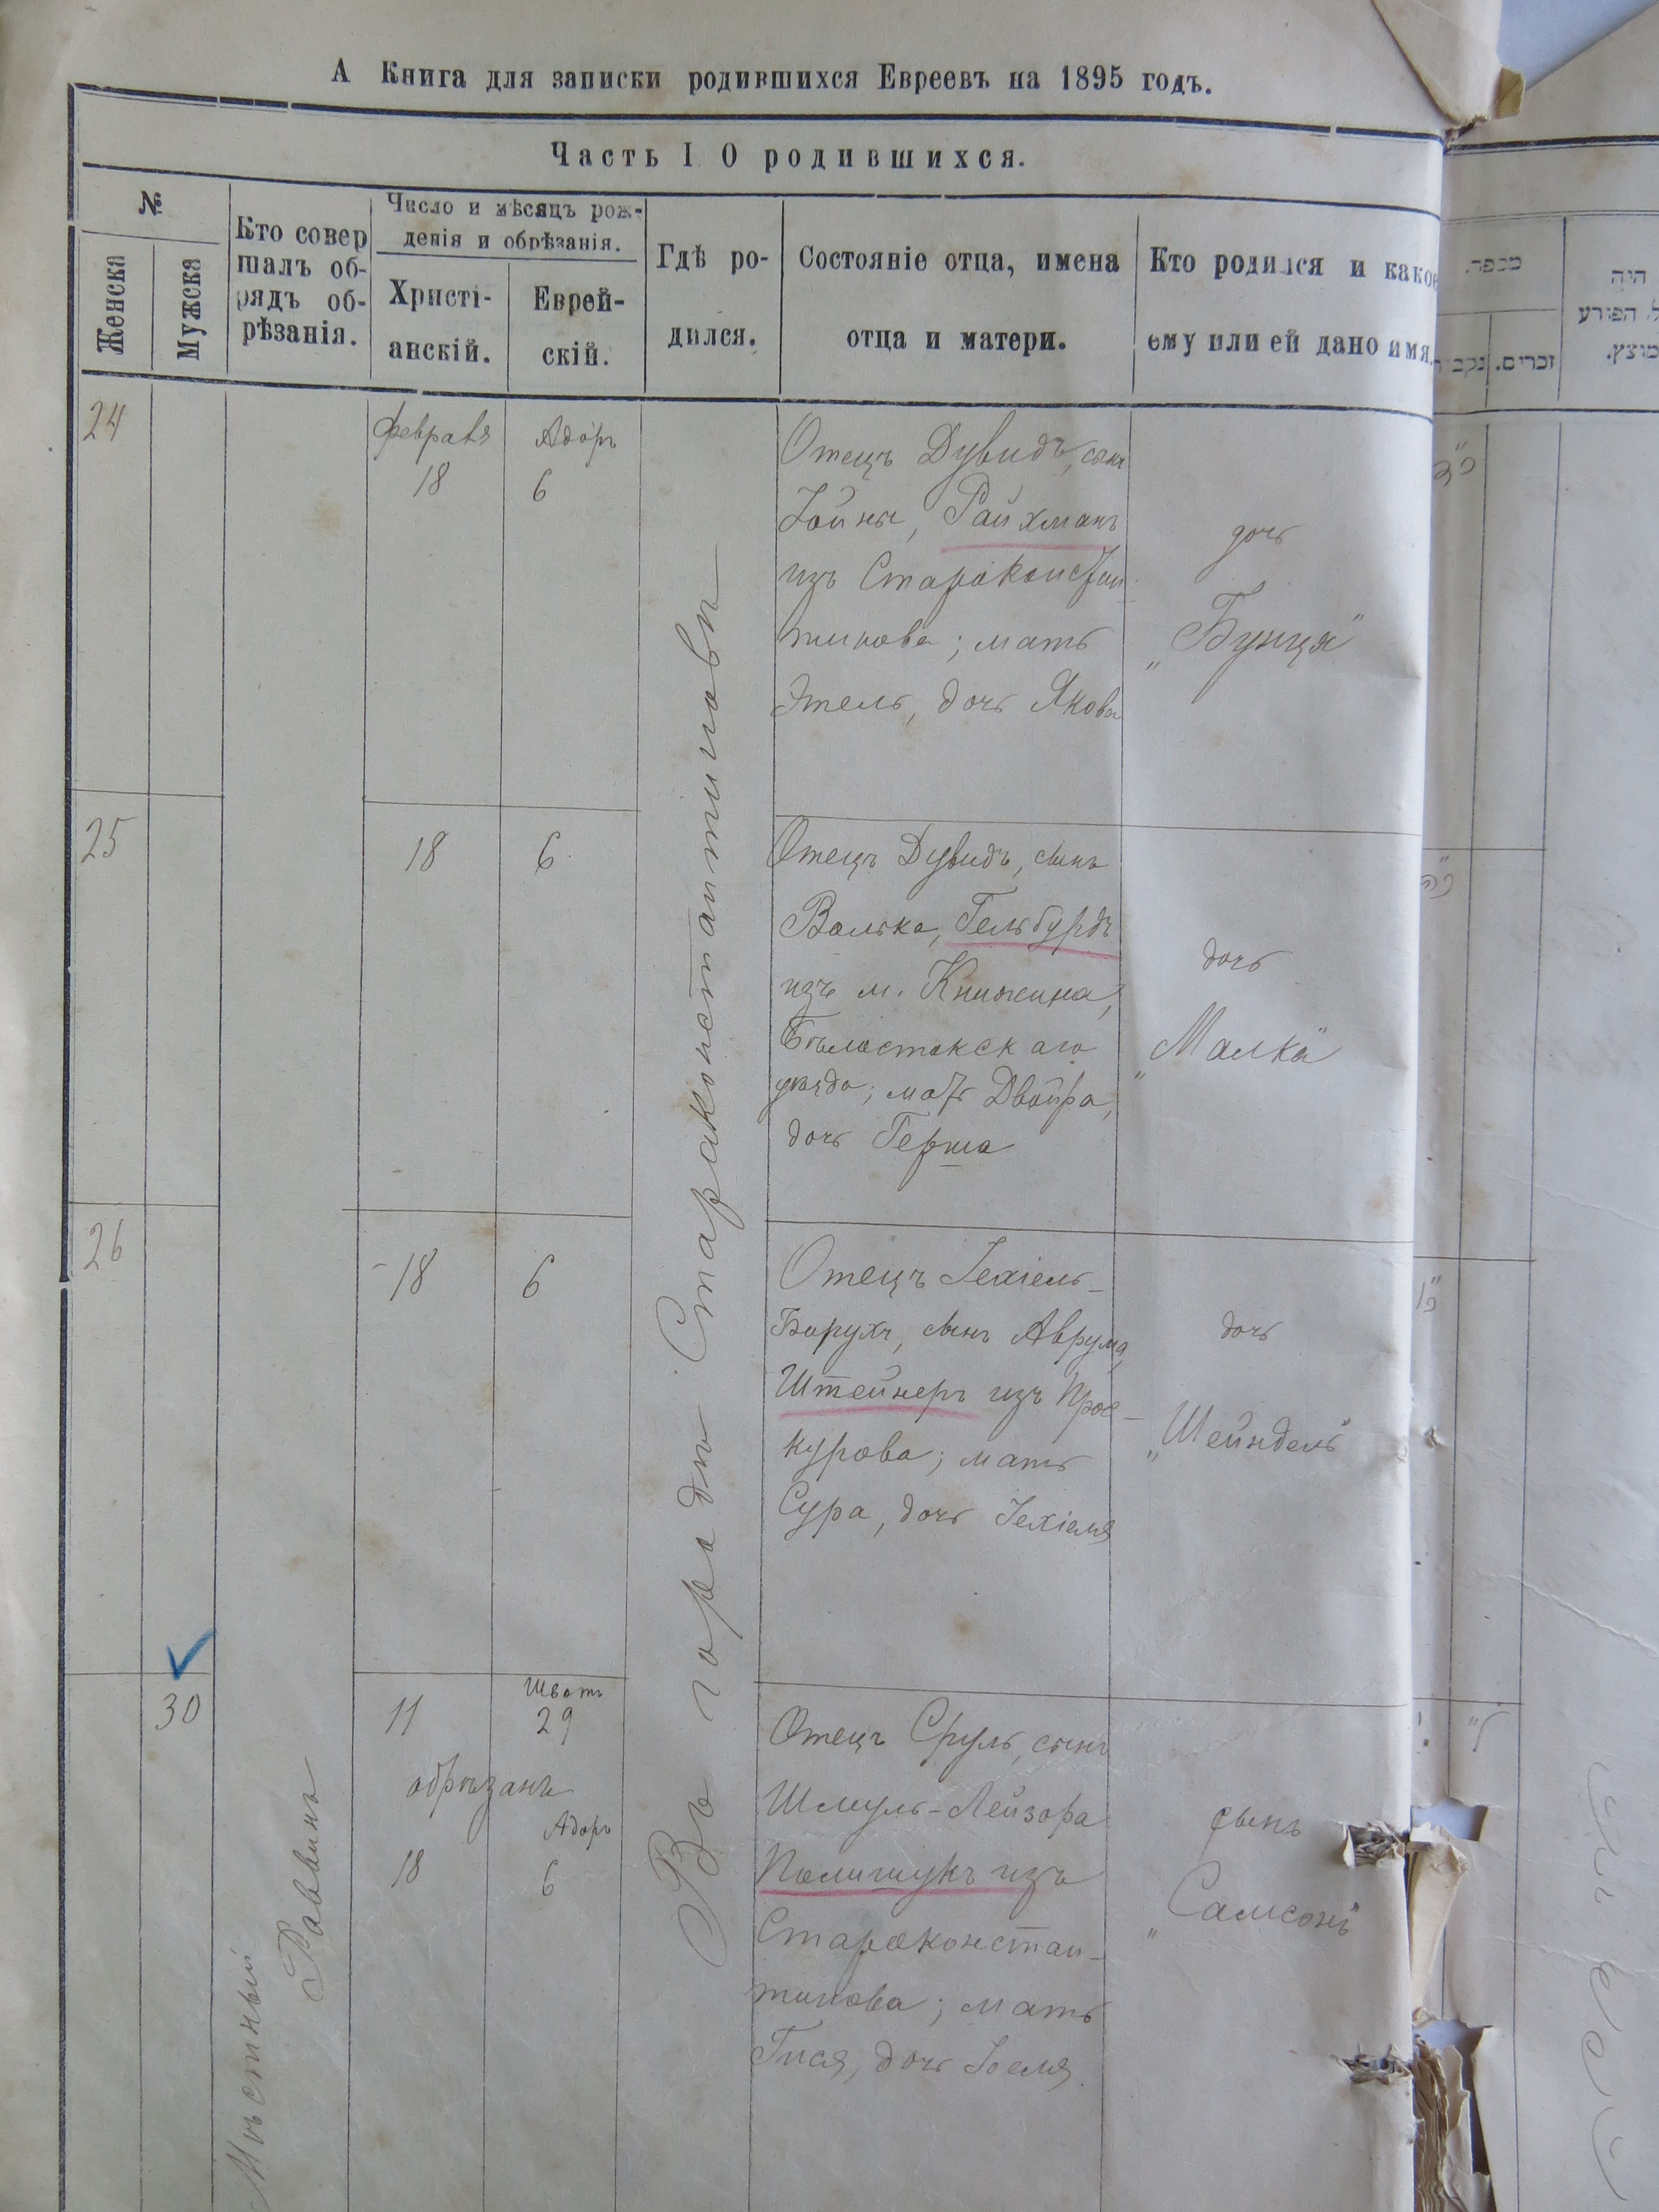 А Книга для записки родившихся Евреевъ на 1895 годъ.
Часть I О родившихся.
№
Женска
Мужска
Кто совер
шалъ об-
рядъ об-
рѣзанія.
Число и мѣсяцъ рож-
денія и обрѣзанія.
Христі-
анскій.
Еврей-
скій.
Гдѣ ро-
дился.
Состояніе отца, имена
отца и матери.
Кто родился и какое
ему или ей дано имя.
מספר
נקבות
זכרים.
היה
הפורע
מוצץ.
Мѣстный
Раввинъ
Въ городѣ Староконстантиновѣ
24
Февраля
18
Адаръ
6
Отецъ Дувидъ, сынъ
Іойны, Райхманъ
изъ Староконстан-
тинова; мать
Этель, дочь Якова
дочь
„Бунця"
כ"ד
25
18
6
Отецъ Дувидъ, сынъ
Волька, Гельбурдъ
изъ м. Книшина,
Бѣлостокскаго
уѣзда; мать Двойра,
дочь Герша
дочь
„Малка"
כ"ה
26
18
6
Отецъ Іехіель-
Борухъ, сынъ Аврума,
Штейнеръ изъ Прос-
курова; мать
Сура, дочь Іехіеля
дочь
„Шейндель"
כ"ו
30
11
Шватъ
29
обрѣзанъ
Адаръ
18
6
Отецъ Сруль, сынъ
Шмуль-Лейзора
Полищукъ изъ
Староконстан-
тинова; мать
Гися, дочь Іоеля
сынъ
„Самсонъ"
ל"